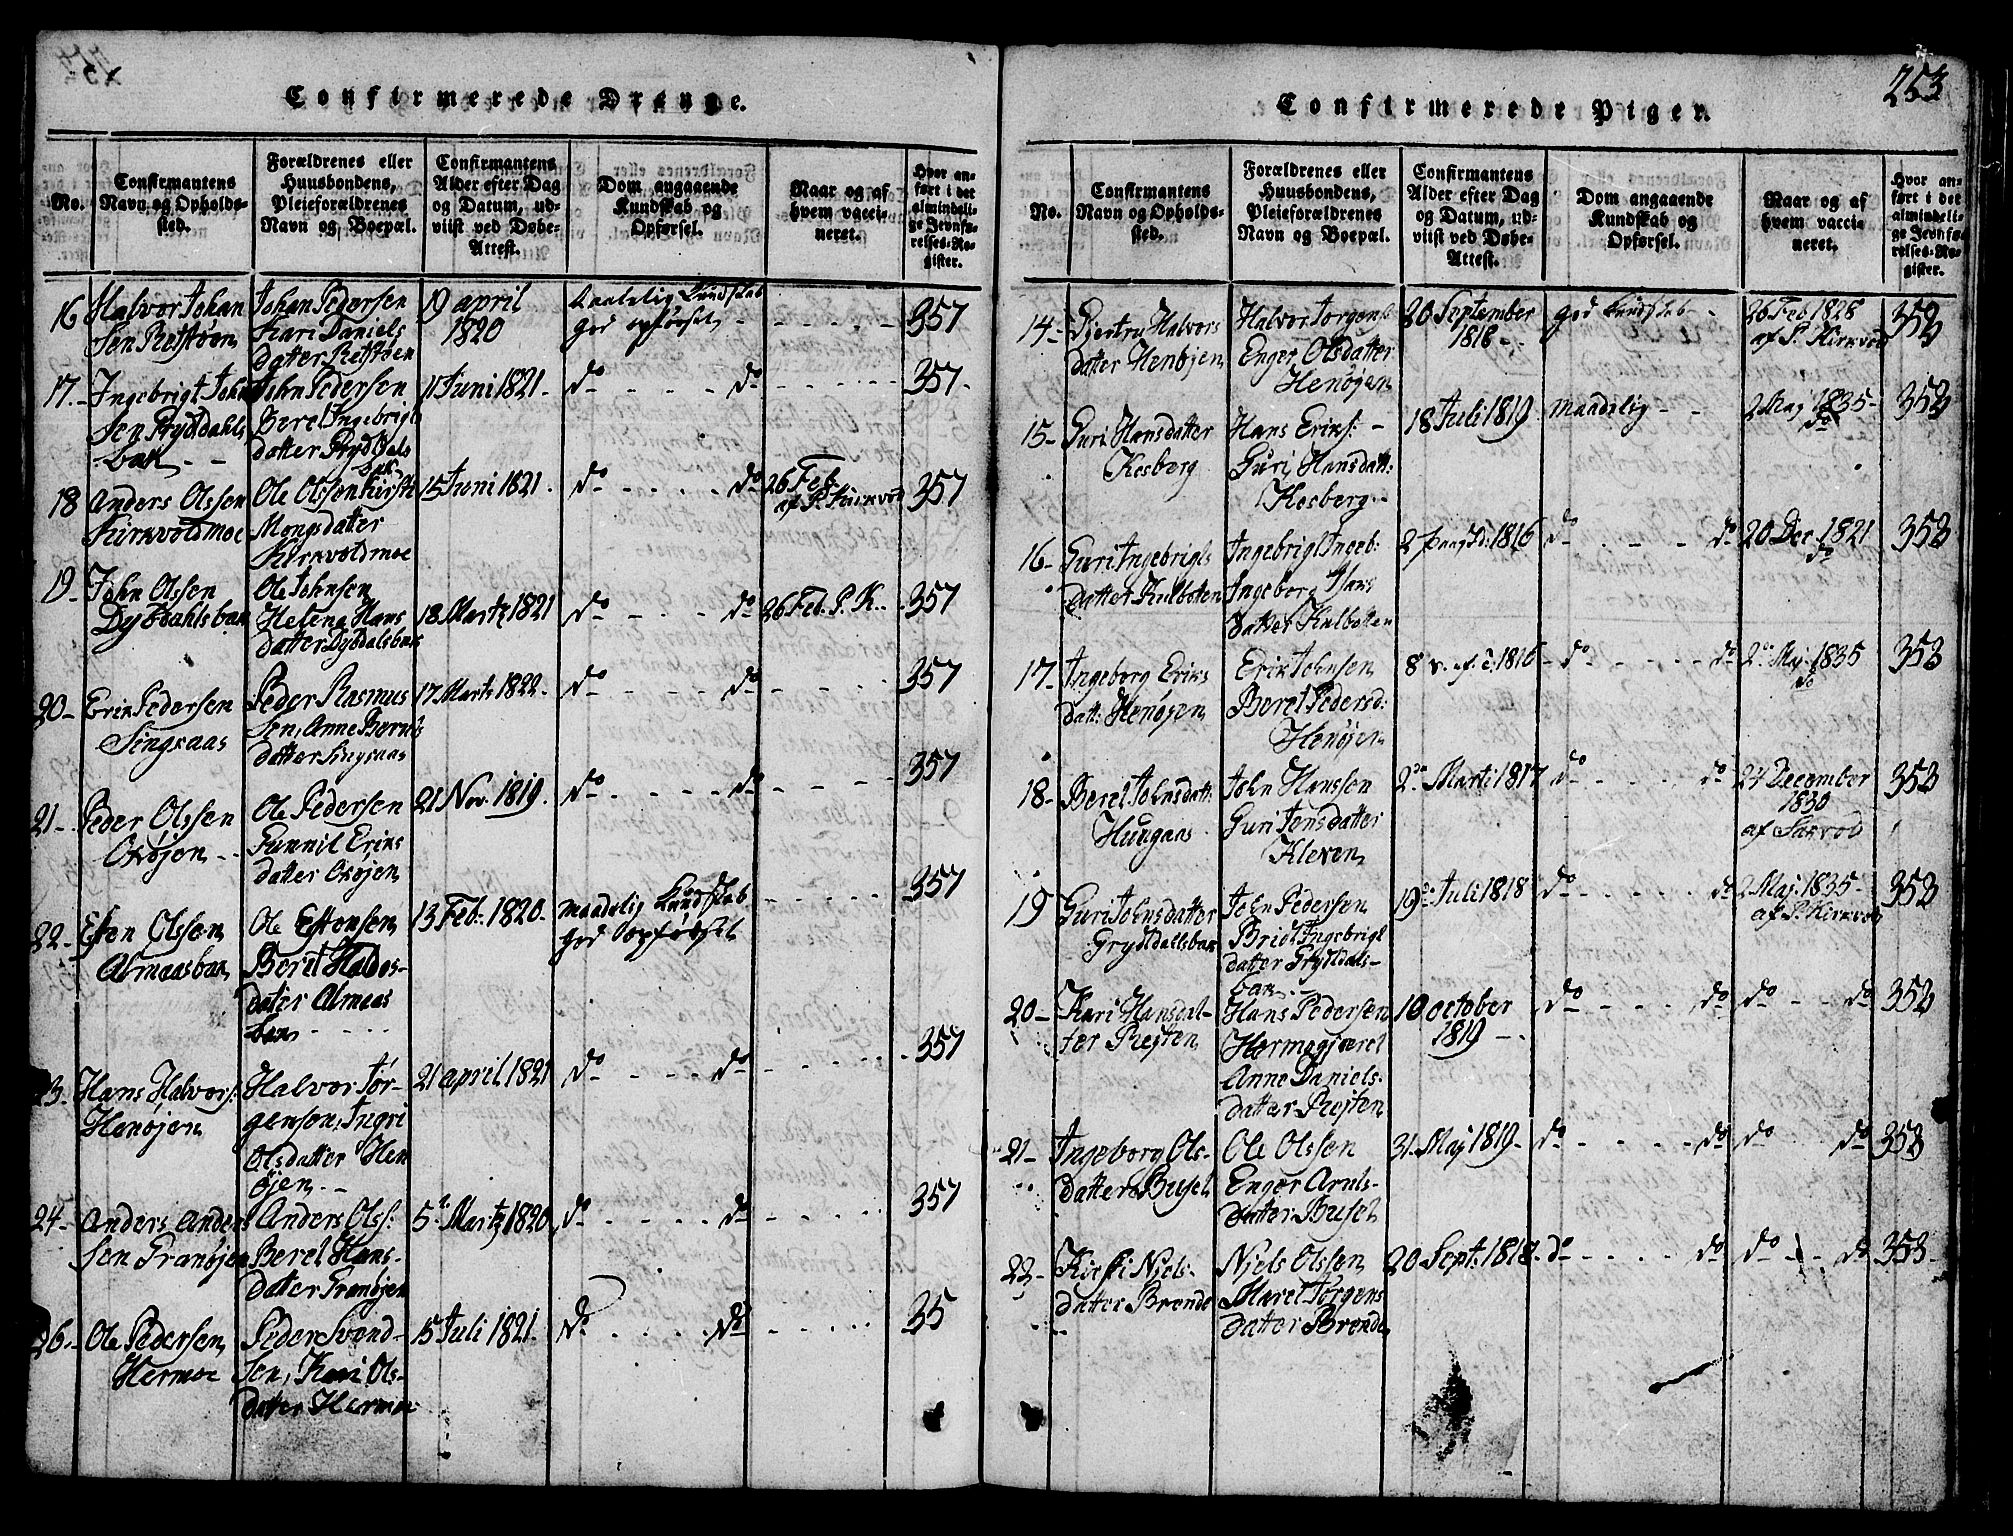 253
Confirmerede Drenge.
No.
Confirmantens
Navn og Opholds-
sted.
Forældrenes eller
Huusbondens,
Pleieforældrenes
Navn og Boepæl.
Confirmantens
Alder efter Dag
og Datum, ud-
viist ved Døbe-
Attest.
Dom angaaende
Kundskab og
Opførsel.
Naar og af
hvem vacci-
neret.
Hvor an-
ført i det
almindeli-
ge Jevnfø-
relses-Re-
gister.
16 Halvor Johan
sen Retstøen
Johan Pedersen
Kari Daniels
datter Retstøen
19 april
1820
Taalelig Kundskab
god opførsel
357
17. Ingebrigt John
sen Grydtdahls
bak
John Pedersen
Beret Ingebrigts
datter Grydtdals
bak
11 Juni 1821.
do do
357.
18 Anders Olssen
Kirkvoldmoe
Ole Olssen Kirsti
Mongsdatter
Kirkvoldmoe
15 Juni 1821.
do do
26 Feb.
af P. Kirkvod
357
19. John Olssen
Dybdahlsbak
Ole Johnsen
Helena Hans
datter Dybdalsbak
18 Martz 1821
do do
26 Feb. P. K.
357
20 Erik Pedersen
Singsaas
Peder Rasmus
sen, Anne Bernts
datter Singsaas
17 Martz 1822.
do do
357
21 Peder Olssen
Oxøjen
Ole Pedersen
Gunnil Eriks
datter Oxøjen
21 Nov. 1819.
do do
357
22 Esten Olssen
Almaasbak
Ole Estensen
Beret Haldos-
datter Almaas
bak
13 Feb: 1820.
maadelig Kundskab
god opførsel
357
23. Hans Halvors:
Henøjen
Halvor Jør-
gensen, Ingri
Olsdatter Hen
øjen
21 april 1821
do do
357
24 Anders Anders
sen Granøjen
Anders Olss:
Beret Hans-
datter Granøjen
5te Martz 1820
do do
357
26. Ole Pedersen
Hermoe
Peder Svend-
sen, Kari Ols-
datter Hermoe
15 Juli 1821.
do do
35
Confirmerede Piger.
No.
Confirmantens
Navn og Opholds-
sted.
Forældrenes eller
Huusbondens,
Pleieforældrenes
Navn og Boepæl.
Confirmantens
Alder efter Dag
og Datum, ud-
viist ved Døbe-
Attest.
Dom angaaende
Kundskab og
Opførsel.
Naar og af
hvem vacci-
neret.
Hvor an-
ført i det
almindeli-
ge Jevnfø-
relses-Re-
gister.
14 Gjertru Halvors
datter Henøjen
Halvor Jørgens
Enger Olsdatter
Henøjen
20 September
1818
god Kundskab
26 Feb 1828
af P. Kirkvod
353
15 Guri Hansdatter
Kosberg
Hans Eriks:
Guri Hansdatt:
Kosberg
18 Juli 1819
maadelig
2 Maj 1835
do
353
16 Guri Ingebrigts
datter Kulbotten
Ingebrigt Ingeb:
Ingeborg Hans
datter Kulbotten
1816
do do
20 Dec. 1821
do
353
17 Ingeborg Eriks
datt: Henøjen
Erik Johnsen
Beret Pedersd:
Henøjen
1816
do do
2 Maj. 1835
do
353
18 Beret Johnsdatt:
Haugans
John Hanssen
Guri Jensdatter
Kleven
2 Marti 1817
do do
24 December
1830
353
19 Guri Johnsdatter
Grydtdalsbak
John Pedersen
Brid Ingebrigt
datter Grydtdals-
bak
19 Juli 1818
do do
2 Maj. 1835
af P. Kirkvod
353
20 Kari Hansdat-
ter Presten
Hans Pedersen
Anne Daniels-
datter Presten
10 october
1819
do do do do
353
21 Ingeborg Ols-
datter Buset
Ole Olssen
Enger Arnts-
datter Buset
31 Maj 1819
do do do do
353
22 Kirsti Niels-
datter Brende
Niels Olssen
Maret Jørgens
datter Brende
20 Sept: 1818.
do do do do
353